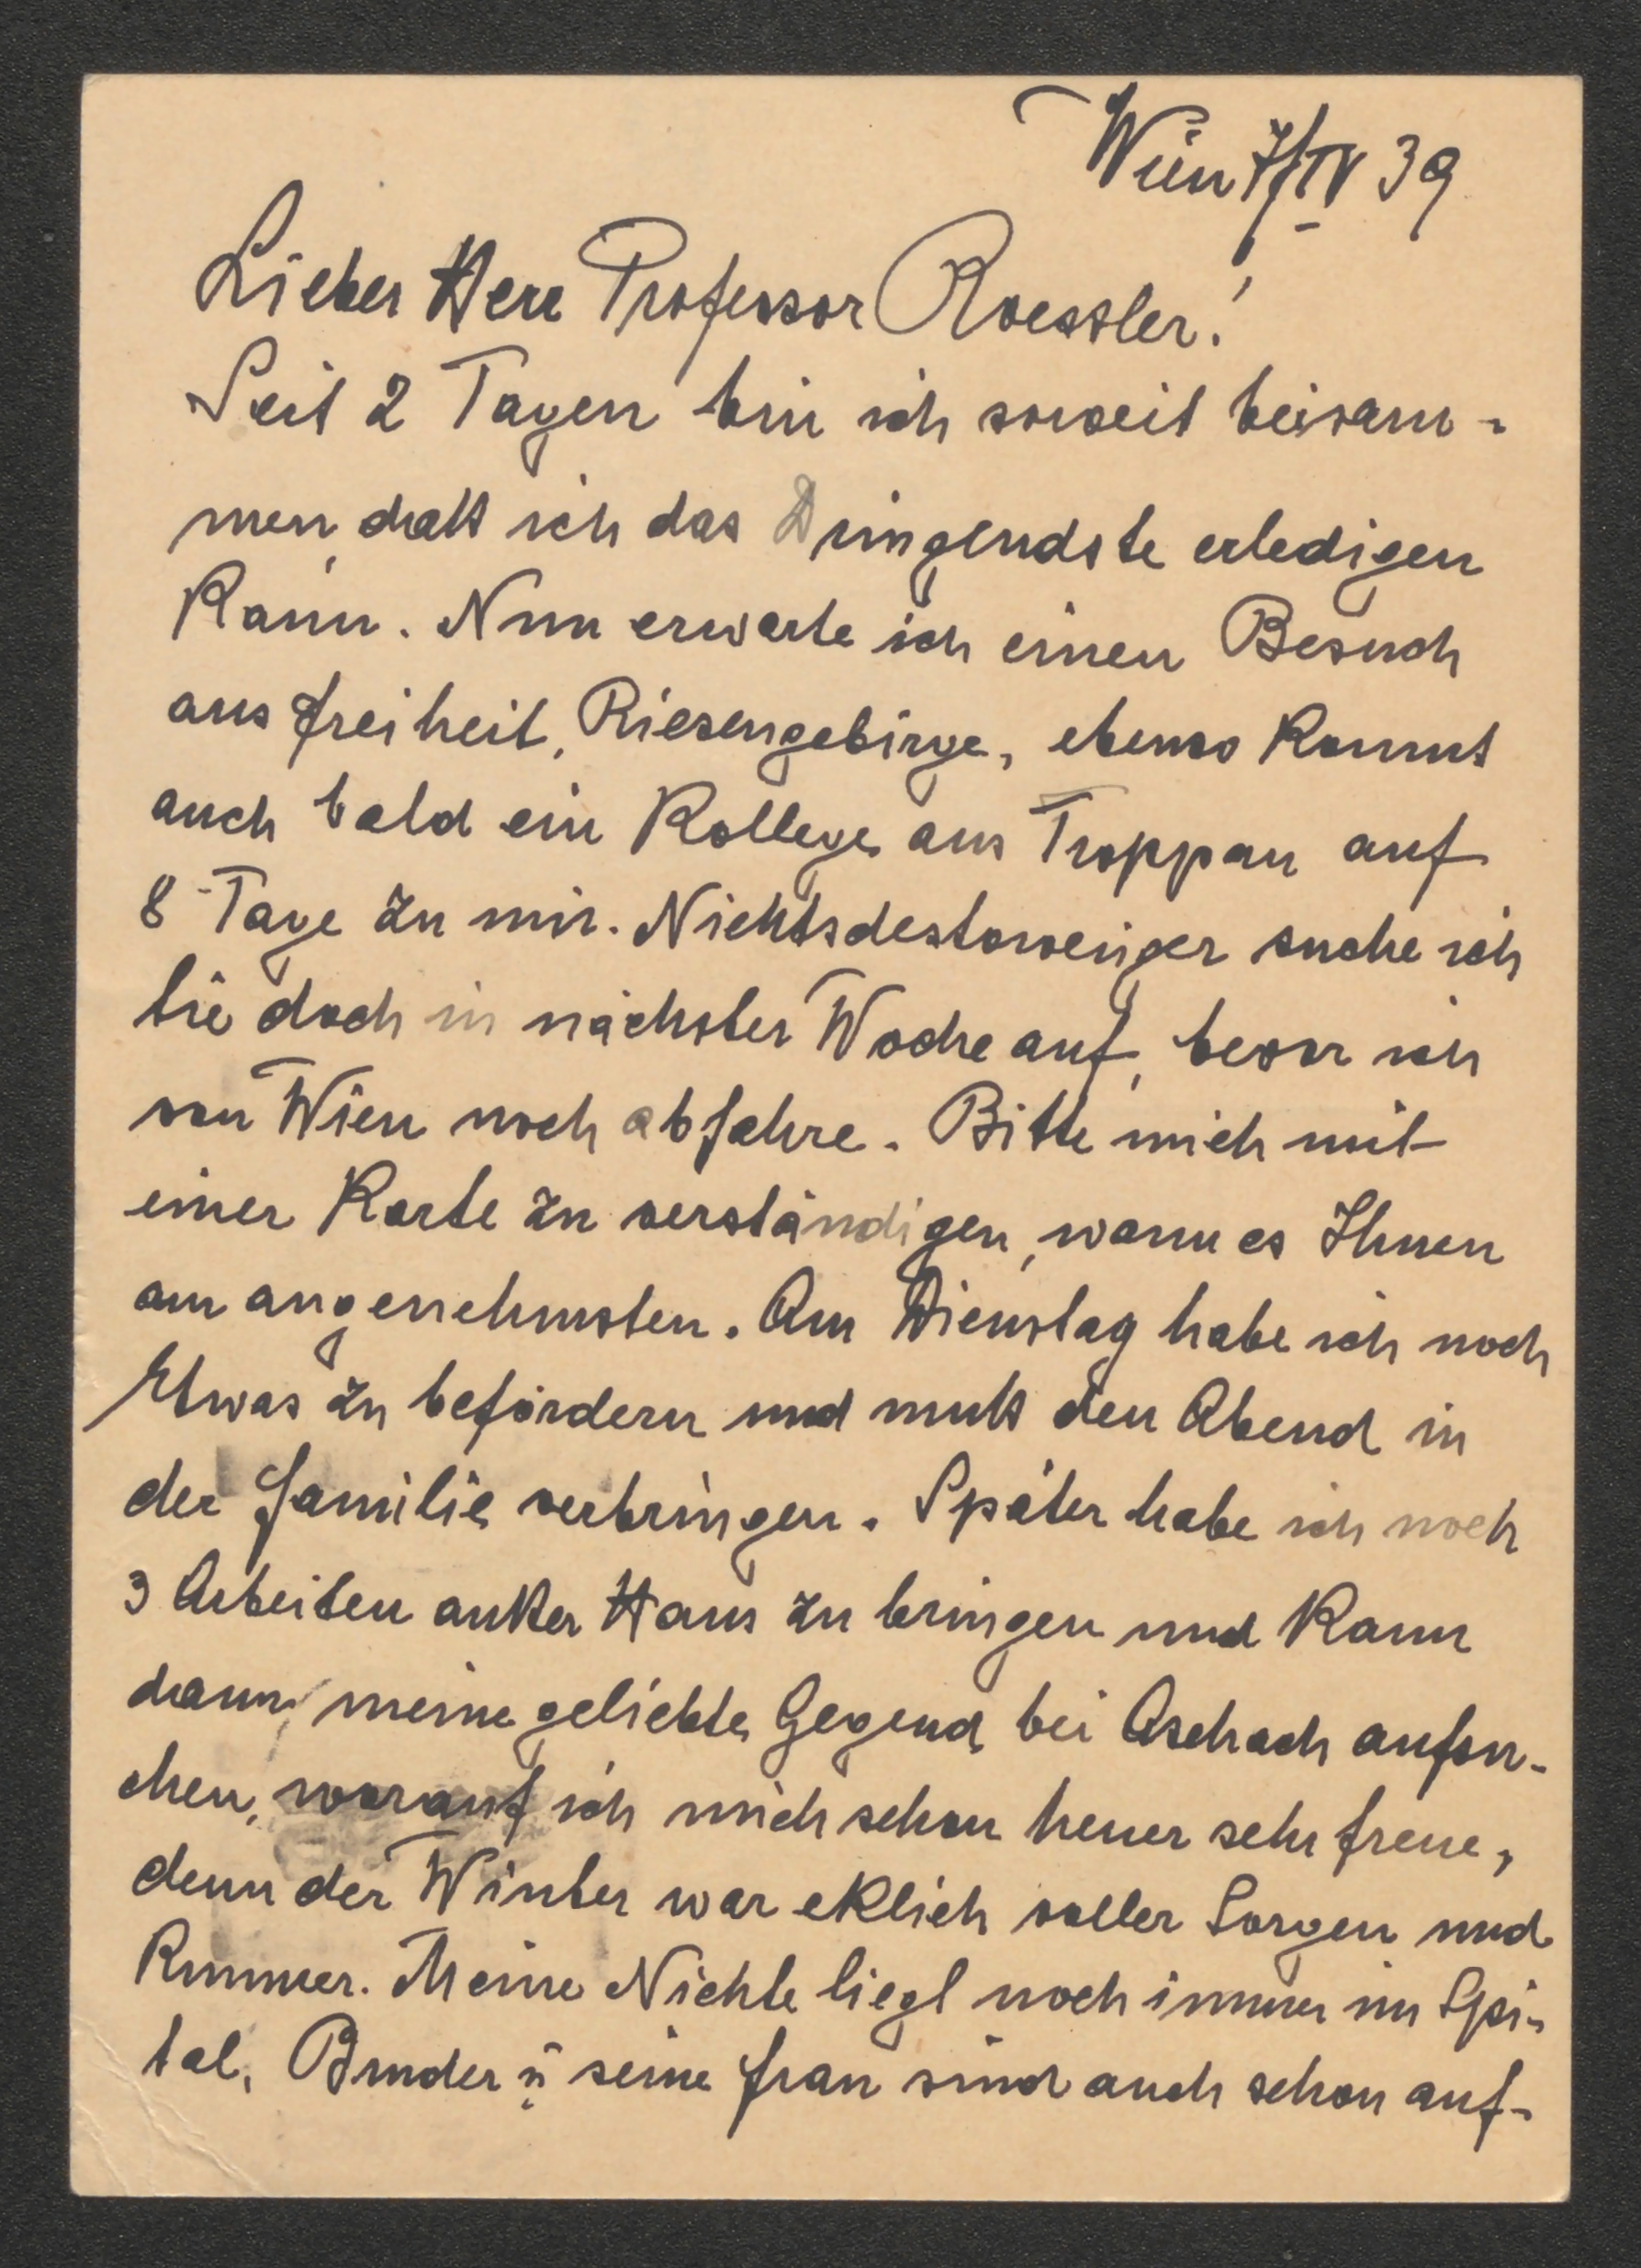 Wien 7/IV 39
Lieber Herr Professor Roessler!
Seit 2 Tagen bin ich soweit beisam-
men, daß ich das Dringendste erledigen
kann. Nun erwarte ich einen Besuch
aus Freiheit, Riesengebirge, ebenso kommt
auch bald ein Kollege aus Troppau auf
8 Tage zu mir. Nichtsdestoweniger suche ich
Sie doch in nächster Woche auf, bevor ich
von Wien noch abfahre. Bitte mich mit
einer Karte zu verständigen, wann es Ihnen
am angenehmsten. Am Dienstag habe ich noch
Etwas zu befördern und muß den Abend in
der Familie verbringen. Später habe ich noch
3 Arbeiten außer Haus zu bringen und kann
dann, meine geliebte Gegend bei Aschach aufsu-
chen, worauf ich mich schon heuer sehr freue,
denn der Winter war eklich voller Sorgen und
Kummer. Meine Nichte liegt noch immer im Spi-
tal, Bruder u seine Frau sind auch schon auf-